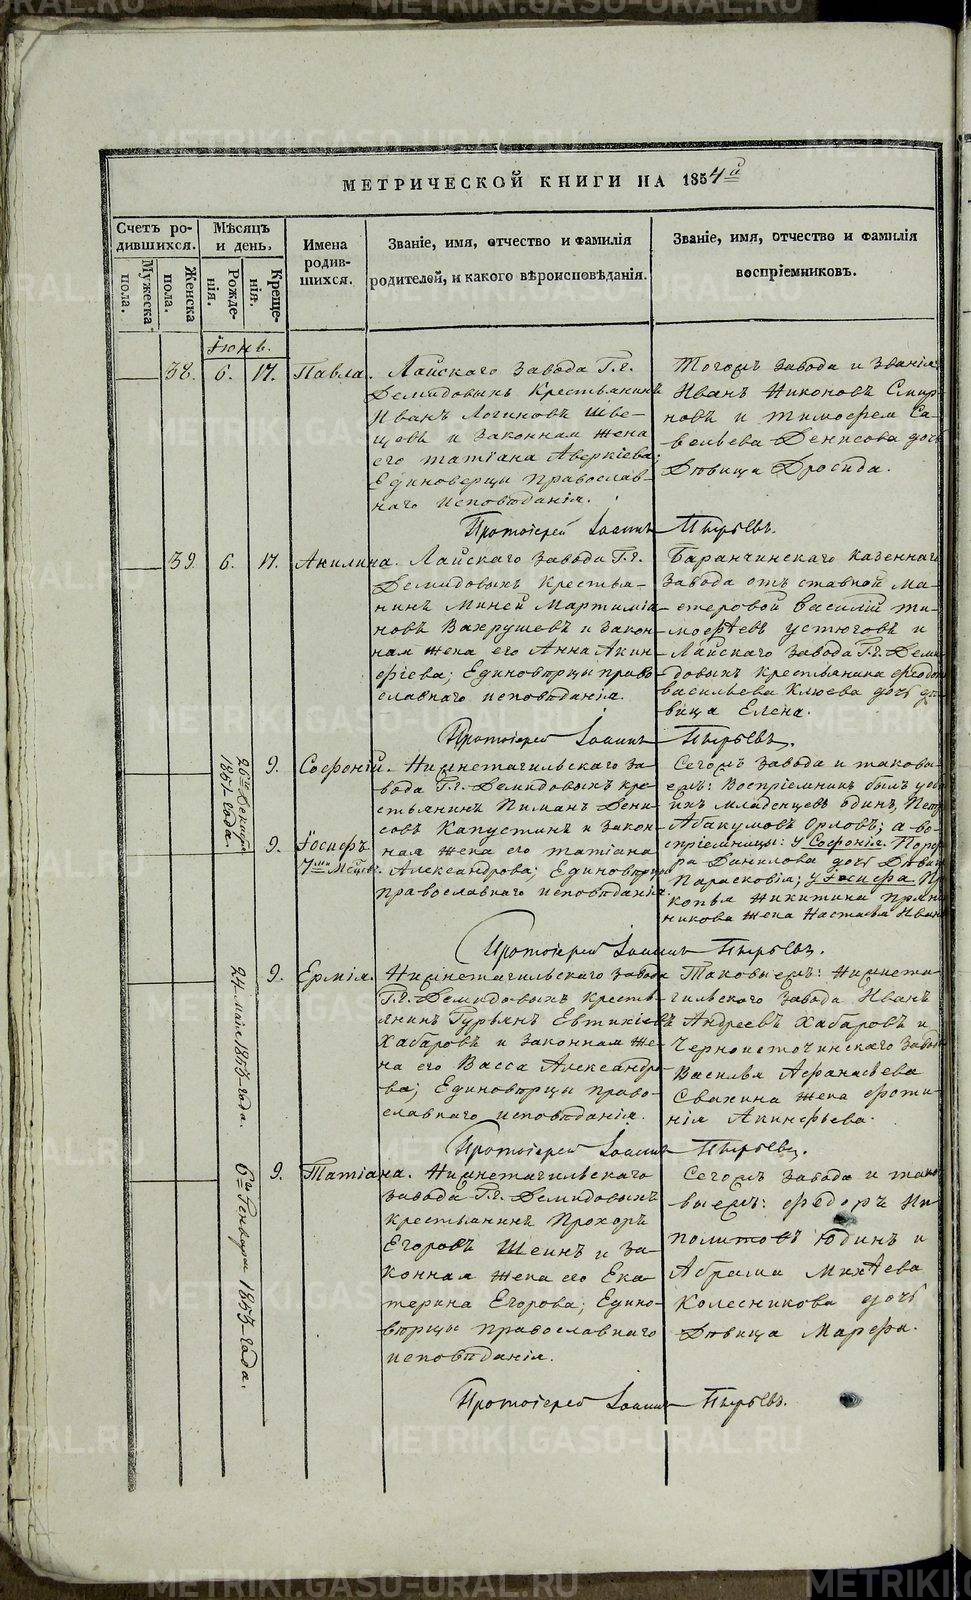 МЕТРИЧЕСКОЙ КНИГИ НА 1854й
Счетъ ро-
дившихся.
Мужеска
пола.
Женска
пола.
Мѣсяцъ
и день.
Рожде-
нія.
Креще-
нія.
Имена
родив-
шихся.
Званіе, имя, отчество и фамилія
родителей, и какого вѣроисповѣданія.
Званіе, имя, отчество и фамилія
воспріемниковъ.
Іюнь.
38. 6. 17. Павла.
Лайскаго завода Г.г.
Демидовыхъ крестьянинъ
Иванъ Логиновъ Шве-
цовъ и законная жена
его Татіана Аверкіева;
Единоверцы Православ-
наго исповѣданія.
Тогожъ завода и званія
Иванъ Никоновъ Смир-
новъ и Тимофея Са-
вельева Денисова дочь
Дѣвица Дросида.
Протоіерей Іоаннъ Пырьевъ.
39. 6. 17. Акилина.
Лайскаго завода Г.г.
Демидовыхъ крестья-
нинъ Миней Мартиміа-
новъ Вахрушевъ и закон-
ная жена его Анна Акин-
фіева; Единовѣрцы право-
славнаго исповѣданія.
Баранчинскаго казеннаго
завода отъ ставной ма-
стеровой Василій Ти-
мофѣевъ Устюговъ и
Лайскаго завода Г.г. Деми-
довыхъ крестьянина Феодо
Васильева Клюева дочь дѣ-
вица Елена.
Протоіерей Іоаннъ Пырьевъ.
26го Декабря
1851 года.
9. Софоній.
9. Іосифъ
7ми мѣсяц.
Нижнетагильскаго за-
вода Г.г. Демидовыхъ кре-
стьянинъ Пиманъ Дени-
совъ Капустинъ и закон-
ная жена его Татіана
Александрова; Единовѣрцы
православнаго исповѣданія.
Сегожъ завода и таковы-
ежъ: Воспріемникъ былъ у обо
ихъ младенцевъ одинъ, Петръ
Абакумовъ Орловъ; а во-
спріемницы: у Софонія Порфи
ра Данилова дочь Дѣвица
Парасковія; у Іосифа Про
копья Никитина Пряни
никова жена Настасья Иван
Протоіерей Іоаннъ Пырьевъ.
24 мая 1853 года.
9. Ермія.
Нижнетагильскаго завода
Г.г. Демидовыхъ кресть-
янинъ Гурьянъ Евтихіевъ
Хабаровъ и законная же-
на его Васса Александро-
ва; Единовѣрцы право-
славнаго исповѣданія.
Таковыежъ: Нижнета-
гильскаго завода Иванъ
Андреевъ Хабаровъ и
Черноисточинскаго завода
Василья Афанасьева
Свахина жена Фоти-
нія Акинфьева.
Протоіерей Іоаннъ Пырьевъ.
6го Генваря 1853 года.
9. Татіана.
Нижнетагильскаго
завода Г.г. Демидовыхъ
крестьянинъ Прохоръ
Егоровъ Шеинъ и за-
конная жена его Ека-
терина Егорова; Едино-
вѣрцы православнаго
исповѣданія.
Сегожъ завода и тако-
выежъ: Федоръ Ип-
политовъ Юдинъ и
Абрама Михѣева
Колесникова дочь
Дѣвица Марфа.
Протоіерей Іоаннъ Пырьевъ.
METRIKI.GASO-URAL.RU